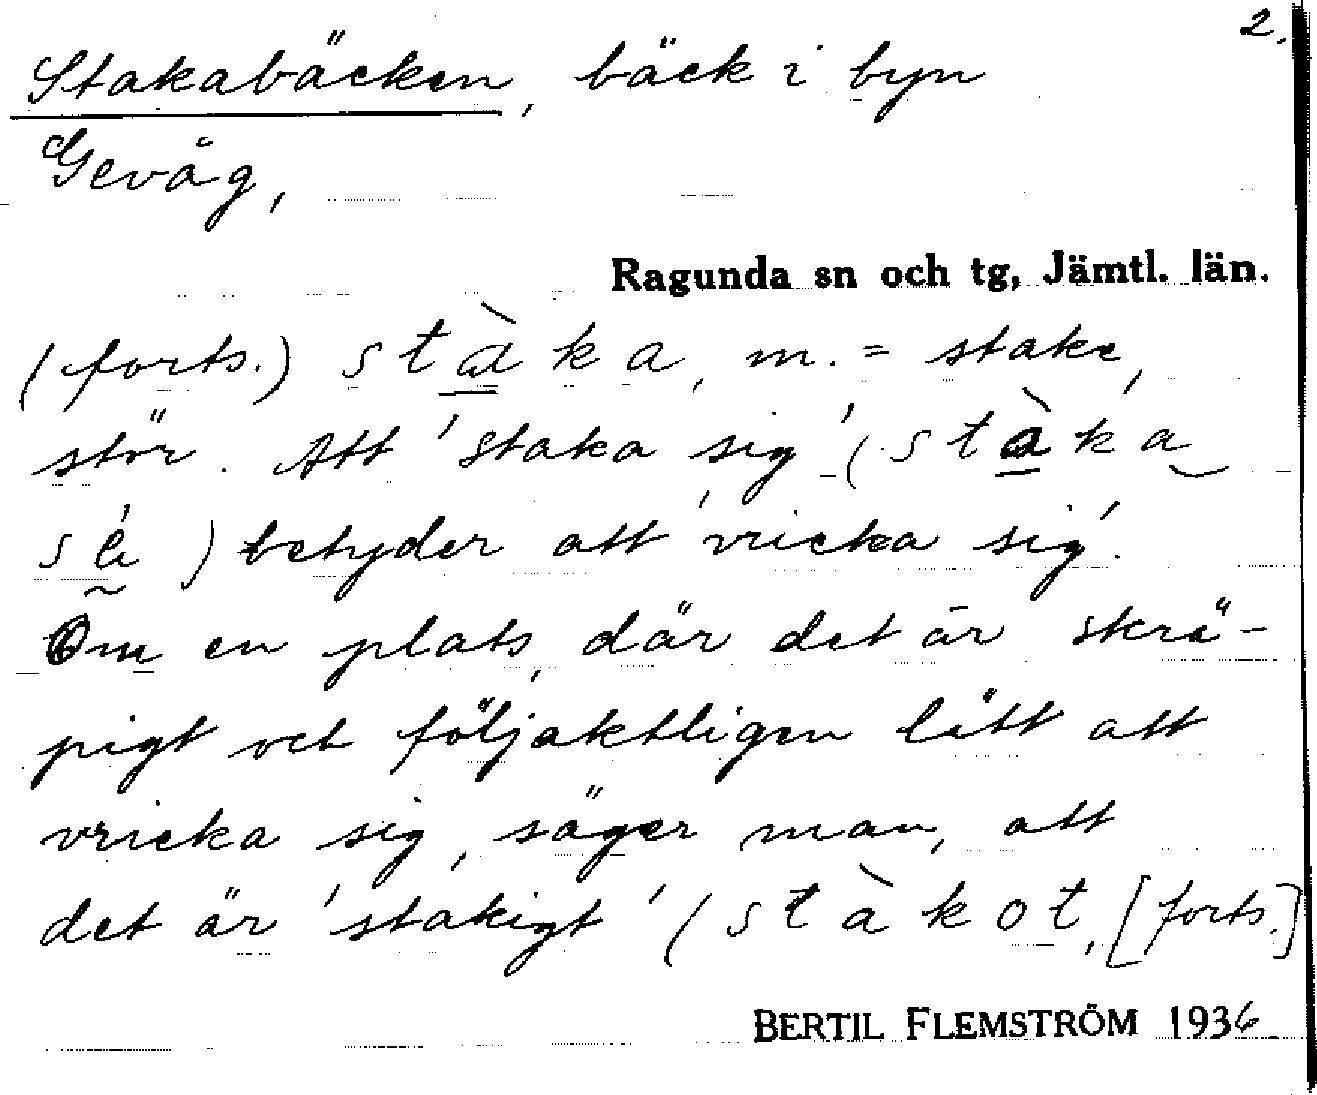 2.
Stakabäcken, bäck i byn
Gevåg,
Ragunda sn och tg, Jämtl. län.
(forts.) stàka, m. = stake,
stör. Att 'staka sig' (stàka
sé) betyder att 'vricka sig'.
Om en plats, där det är skrä-
pigt och följaktligen lätt att
vricka sig, säger man, att
det är 'stakigt' (stàkot, [forts.]
BERTIL FLEMSTRÖM 1936